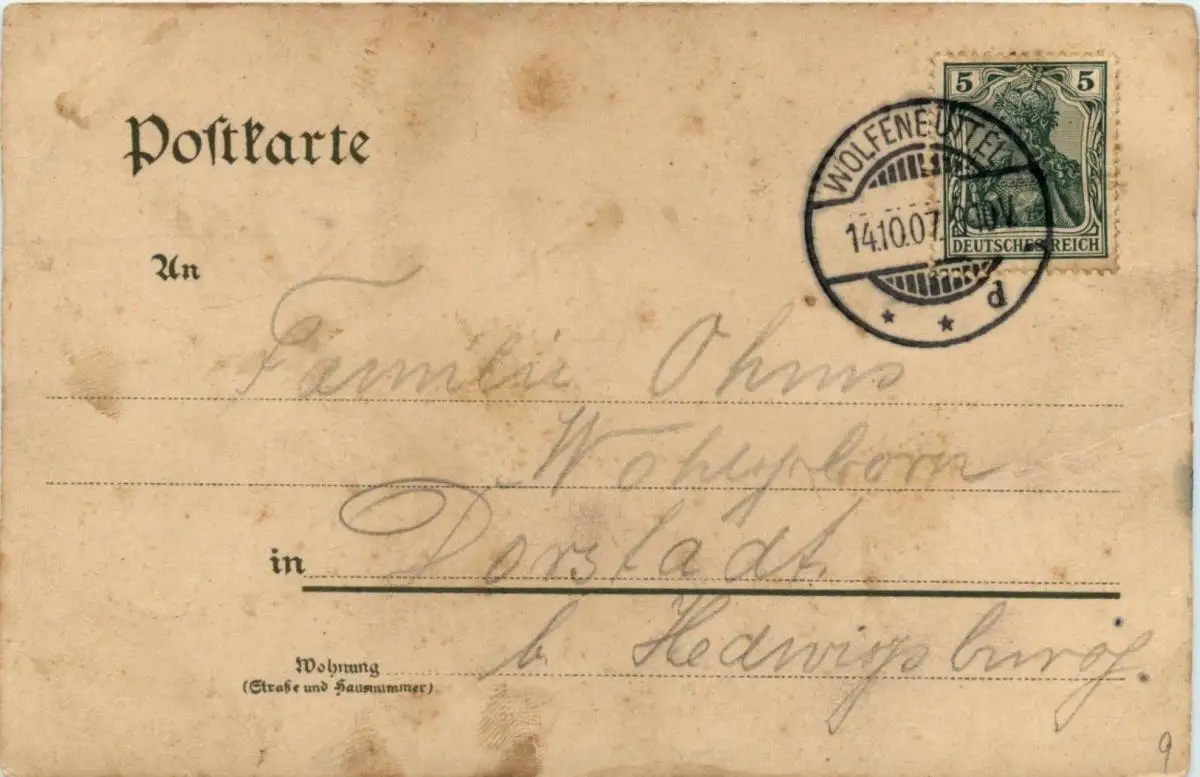 Postkarte
5 5
DEUTSCHES REICH
WOLFENBÜTTEL
14.10.07. 8-9 V.
d
An
Familie Ohms
Wohlgeborn
in Dorstadt.
b. Hedwigsburg.
Wohnung
(Straße und Hausnummer)
9